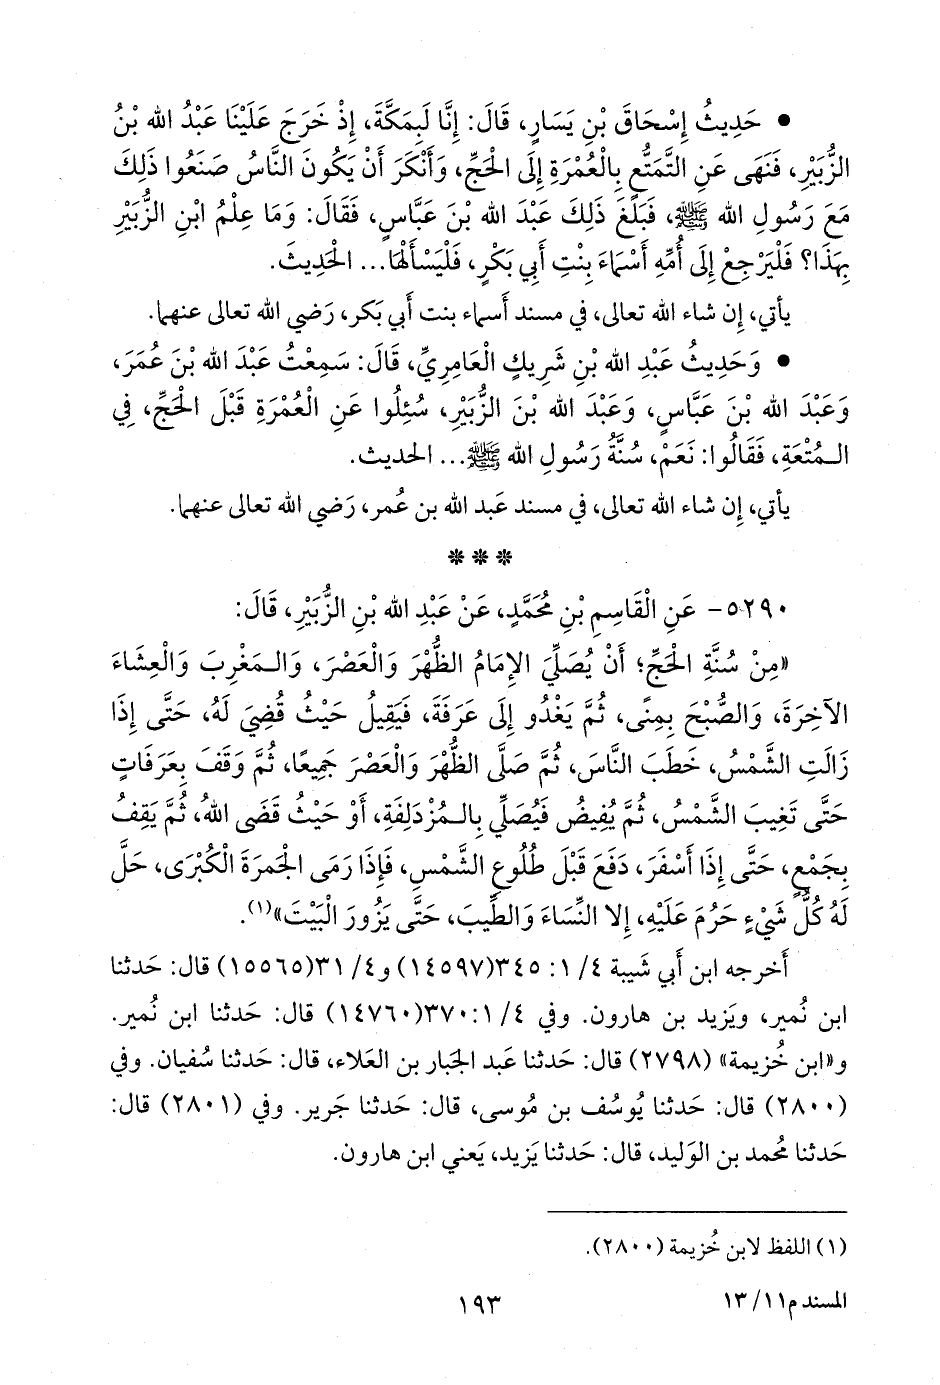 • حَدِيثُ إِسْحَاقَ بْنِ يَسَارٍ، قَالَ: إِنَّا لَبِمَكَّةَ، إِذْ خَرَجَ عَلَيْنَا عَبْدُ الله بْنُ
الزُّبَيْرِ، فَنَهَى عَنِ التَّمَتُّعِ بِالْعُمْرَةِ إِلَى الْحَجِّ، وَأَنْكَرَ أَنْ يَكُونَ النَّاسُ صَنَعُوا ذَلِكَ
مَعَ رَسُولِ الله ﷺ، فَبَلَغَ ذَلِكَ عَبْدَ الله بْنَ عَبَّاسٍ، فَقَالَ: وَمَا عِلْمُ ابْنِ الزُّبَيْرِ
بِهَذَا؟ فَلْيَرْجِعْ إِلَى أُمِّهِ أَسْمَاءَ بِنْتِ أَبِي بَكْرٍ، فَلْيَسْأَلْهَا... الْحَدِيثَ.
يأتي، إن شاء الله تعالى، في مسند أَسماء بنت أَبي بَكر، رَضي الله تعالى عنهما.
• وَحَدِيثُ عَبْدِ الله بْنِ شَرِيكٍ الْعَامِرِيِّ، قَالَ: سَمِعْتُ عَبْدَ الله بْنَ عُمَرَ،
وَعَبْدَ الله بْنَ عَبَّاسٍ، وَعَبْدَ الله بْنَ الزُّبَيْرِ، سُئِلُوا عَنِ الْعُمْرَةِ قَبْلَ الْحَجِّ، فِي
الـمُتْعَةِ، فَقَالُوا: نَعَمْ، سُنَّةُ رَسُولِ الله ﷺ... الحديث.
يأتي، إن شاء الله تعالى، في مسند عَبد الله بن عُمر، رَضي الله تعالى عنهما.
***
٥٢٩٠- عَنِ الْقَاسِمِ بْنِ مُحَمَّدٍ، عَنْ عَبْدِ الله بْنِ الزُّبَيْرِ، قَالَ:
«مِنْ سُنَّةِ الْحَجِّ؛ أَنْ يُصَلِّيَ الإِمَامُ الظُّهْرَ وَالْعَصْرَ، وَالـمَغْرِبَ وَالْعِشَاءَ
الآخِرَةَ، وَالصُّبْحَ بِمِنًى، ثُمَّ يَغْدُو إِلَى عَرَفَةَ، فَيَقِيلُ حَيْثُ قُضِيَ لَهُ، حَتَّى إِذَا
زَالَتِ الشَّمْسُ، خَطَبَ النَّاسَ، ثُمَّ صَلَّى الظُّهْرَ وَالْعَصْرَ جَمِيعًا، ثُمَّ وَقَفَ بِعَرَفَاتٍ
حَتَّى تَغِيبَ الشَّمْسُ، ثُمَّ يُفِيضُ فَيُصَلِّي بِالـمُزْدَلِفَةِ، أَوْ حَيْثُ قَضَى اللهُ، ثُمَّ يَقِفُ
بِجَمْعٍ، حَتَّى إِذَا أَسْفَرَ، دَفَعَ قَبْلَ طُلُوعِ الشَّمْسِ، فَإِذَا رَمَى الْجَمرَةَ الْكُبْرَى، حَلَّ
لَهُ كُلُّ شَيْءٍ حَرُمَ عَلَيْهِ، إِلا النِّسَاءَ وَالطِّيبَ، حَتَّى يَزُورَ الْبَيْتَ»(١).
أَخرجه ابن أَبي شَيبة ٤/ ١: ٣٤٥(١٤٥٩٧) و٤/ ٣١(١٥٥٦٥) قال: حَدثنا
ابن نُمير، ويَزيد بن هارون. وفي ٤/ ١:٣٧٠(١٤٧٦٠) قال: حَدثنا ابن نُمير.
و«ابن خُزيمة» (٢٧٩٨) قال: حَدثنا عَبد الجَبار بن العَلاء، قال: حَدثنا سُفيان. وفي
(٢٨٠٠) قال: حَدثنا يُوسُف بن مُوسى، قال: حَدثنا جَرير. وفي (٢٨٠١) قال:
حَدثنا مُحمد بن الوَليد، قال: حَدثنا يَزيد، يَعني ابن هارون.
(١) اللفظ لابن خُزيمة (٢٨٠٠).
المسند م١١/ ١٣
١٩٣